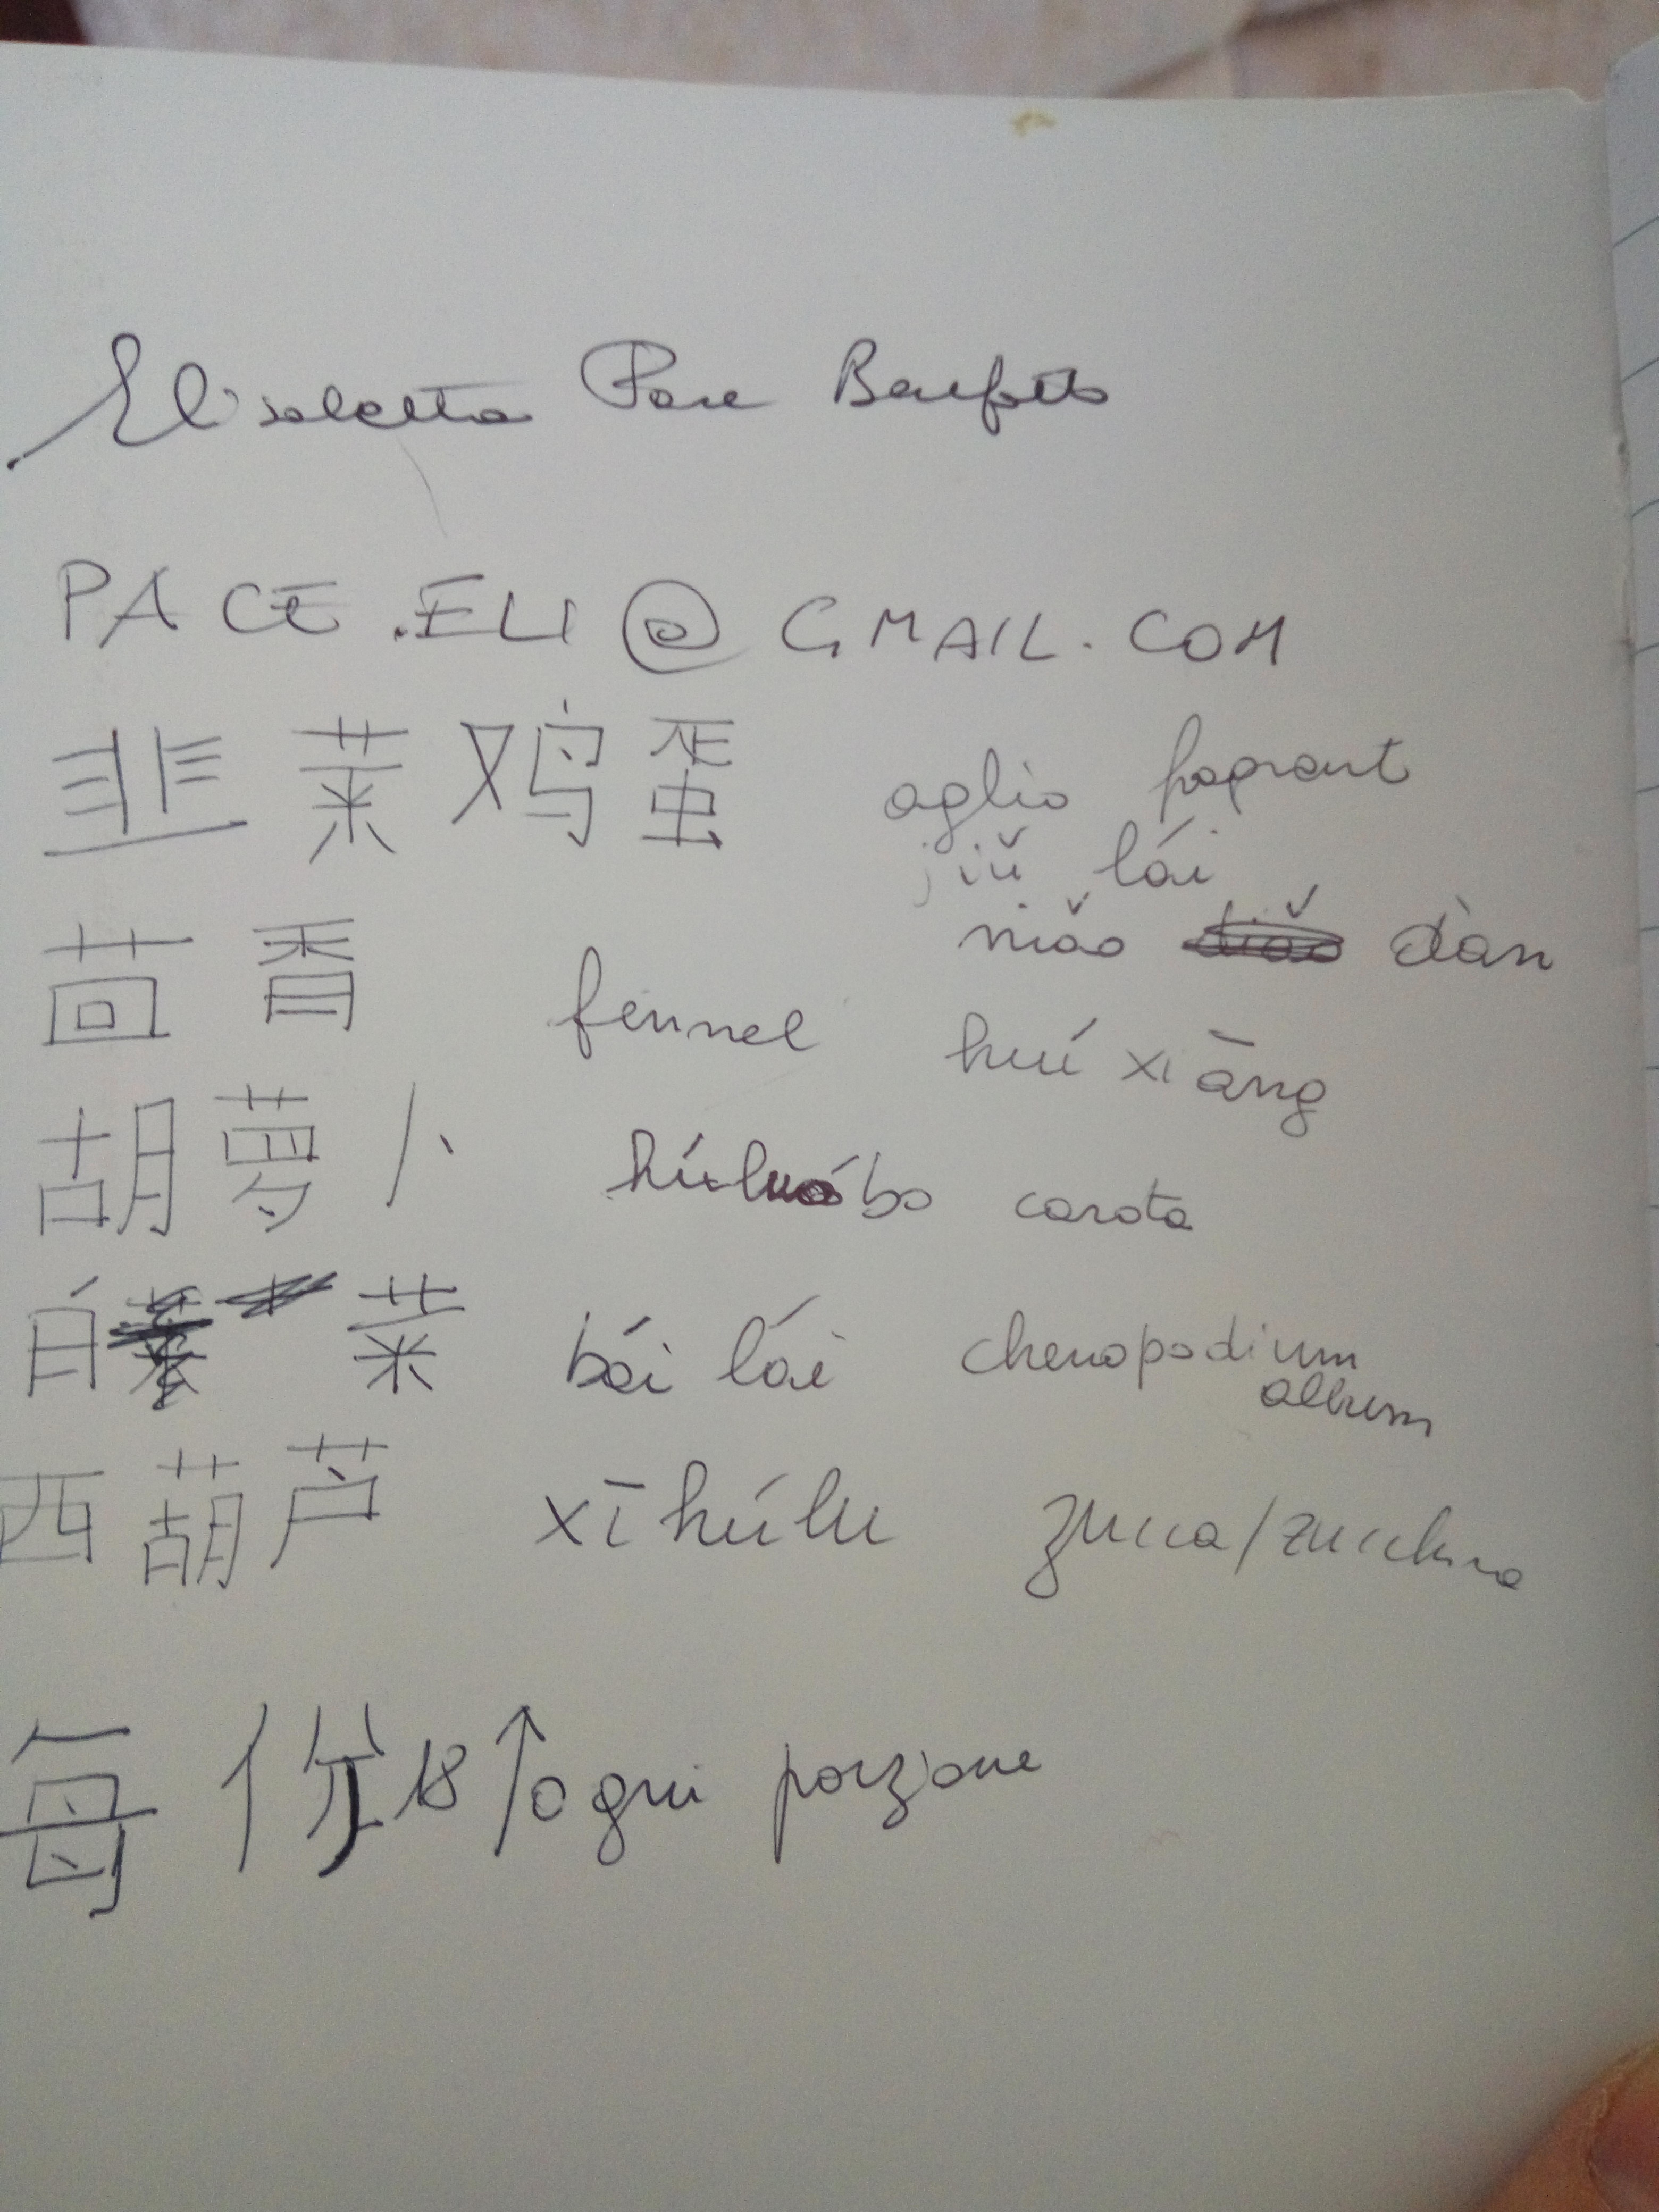 Elisabetta Pace Benfatto
PACE.ELI@GMAIL.COM
韭菜鸡蛋 aglio fragrant
jiǔ lái
niǎo dàn
茴香 fennel huí xiāng
胡萝卜 húluóbo carota
白菜 bái lái chenopodium album
西葫芦 xī húlu zucca/zucchina
每份18个 ogni porzione